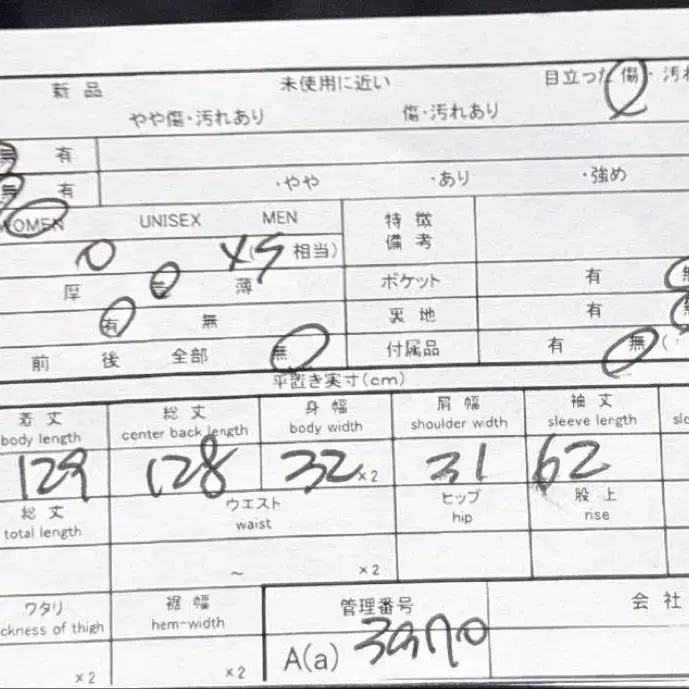 新品 未使用に近い 目立った傷・汚れ
やや傷・汚れあり 傷・汚れあり
無 有
無 有 ・やや ・あり ・強め
WOMEN UNISEX MEN 特徴
備考
0 XS 相当)
厚 薄 ポケット 有 無
有 無 裏地 有 無
前 後 全部 無 付属品 有 無(
平置き実寸(cm)
着丈 総丈 身幅 肩幅 袖丈
body length center back length body width shoulder width sleeve length
129 128 32 ×2 31 62
総丈 ウエスト ヒップ 股上
total length waist hip rise
~ ×2
ワタリ 裾幅 管理番号 会社
ckness of thigh hem-width
×2 ×2 A(a)